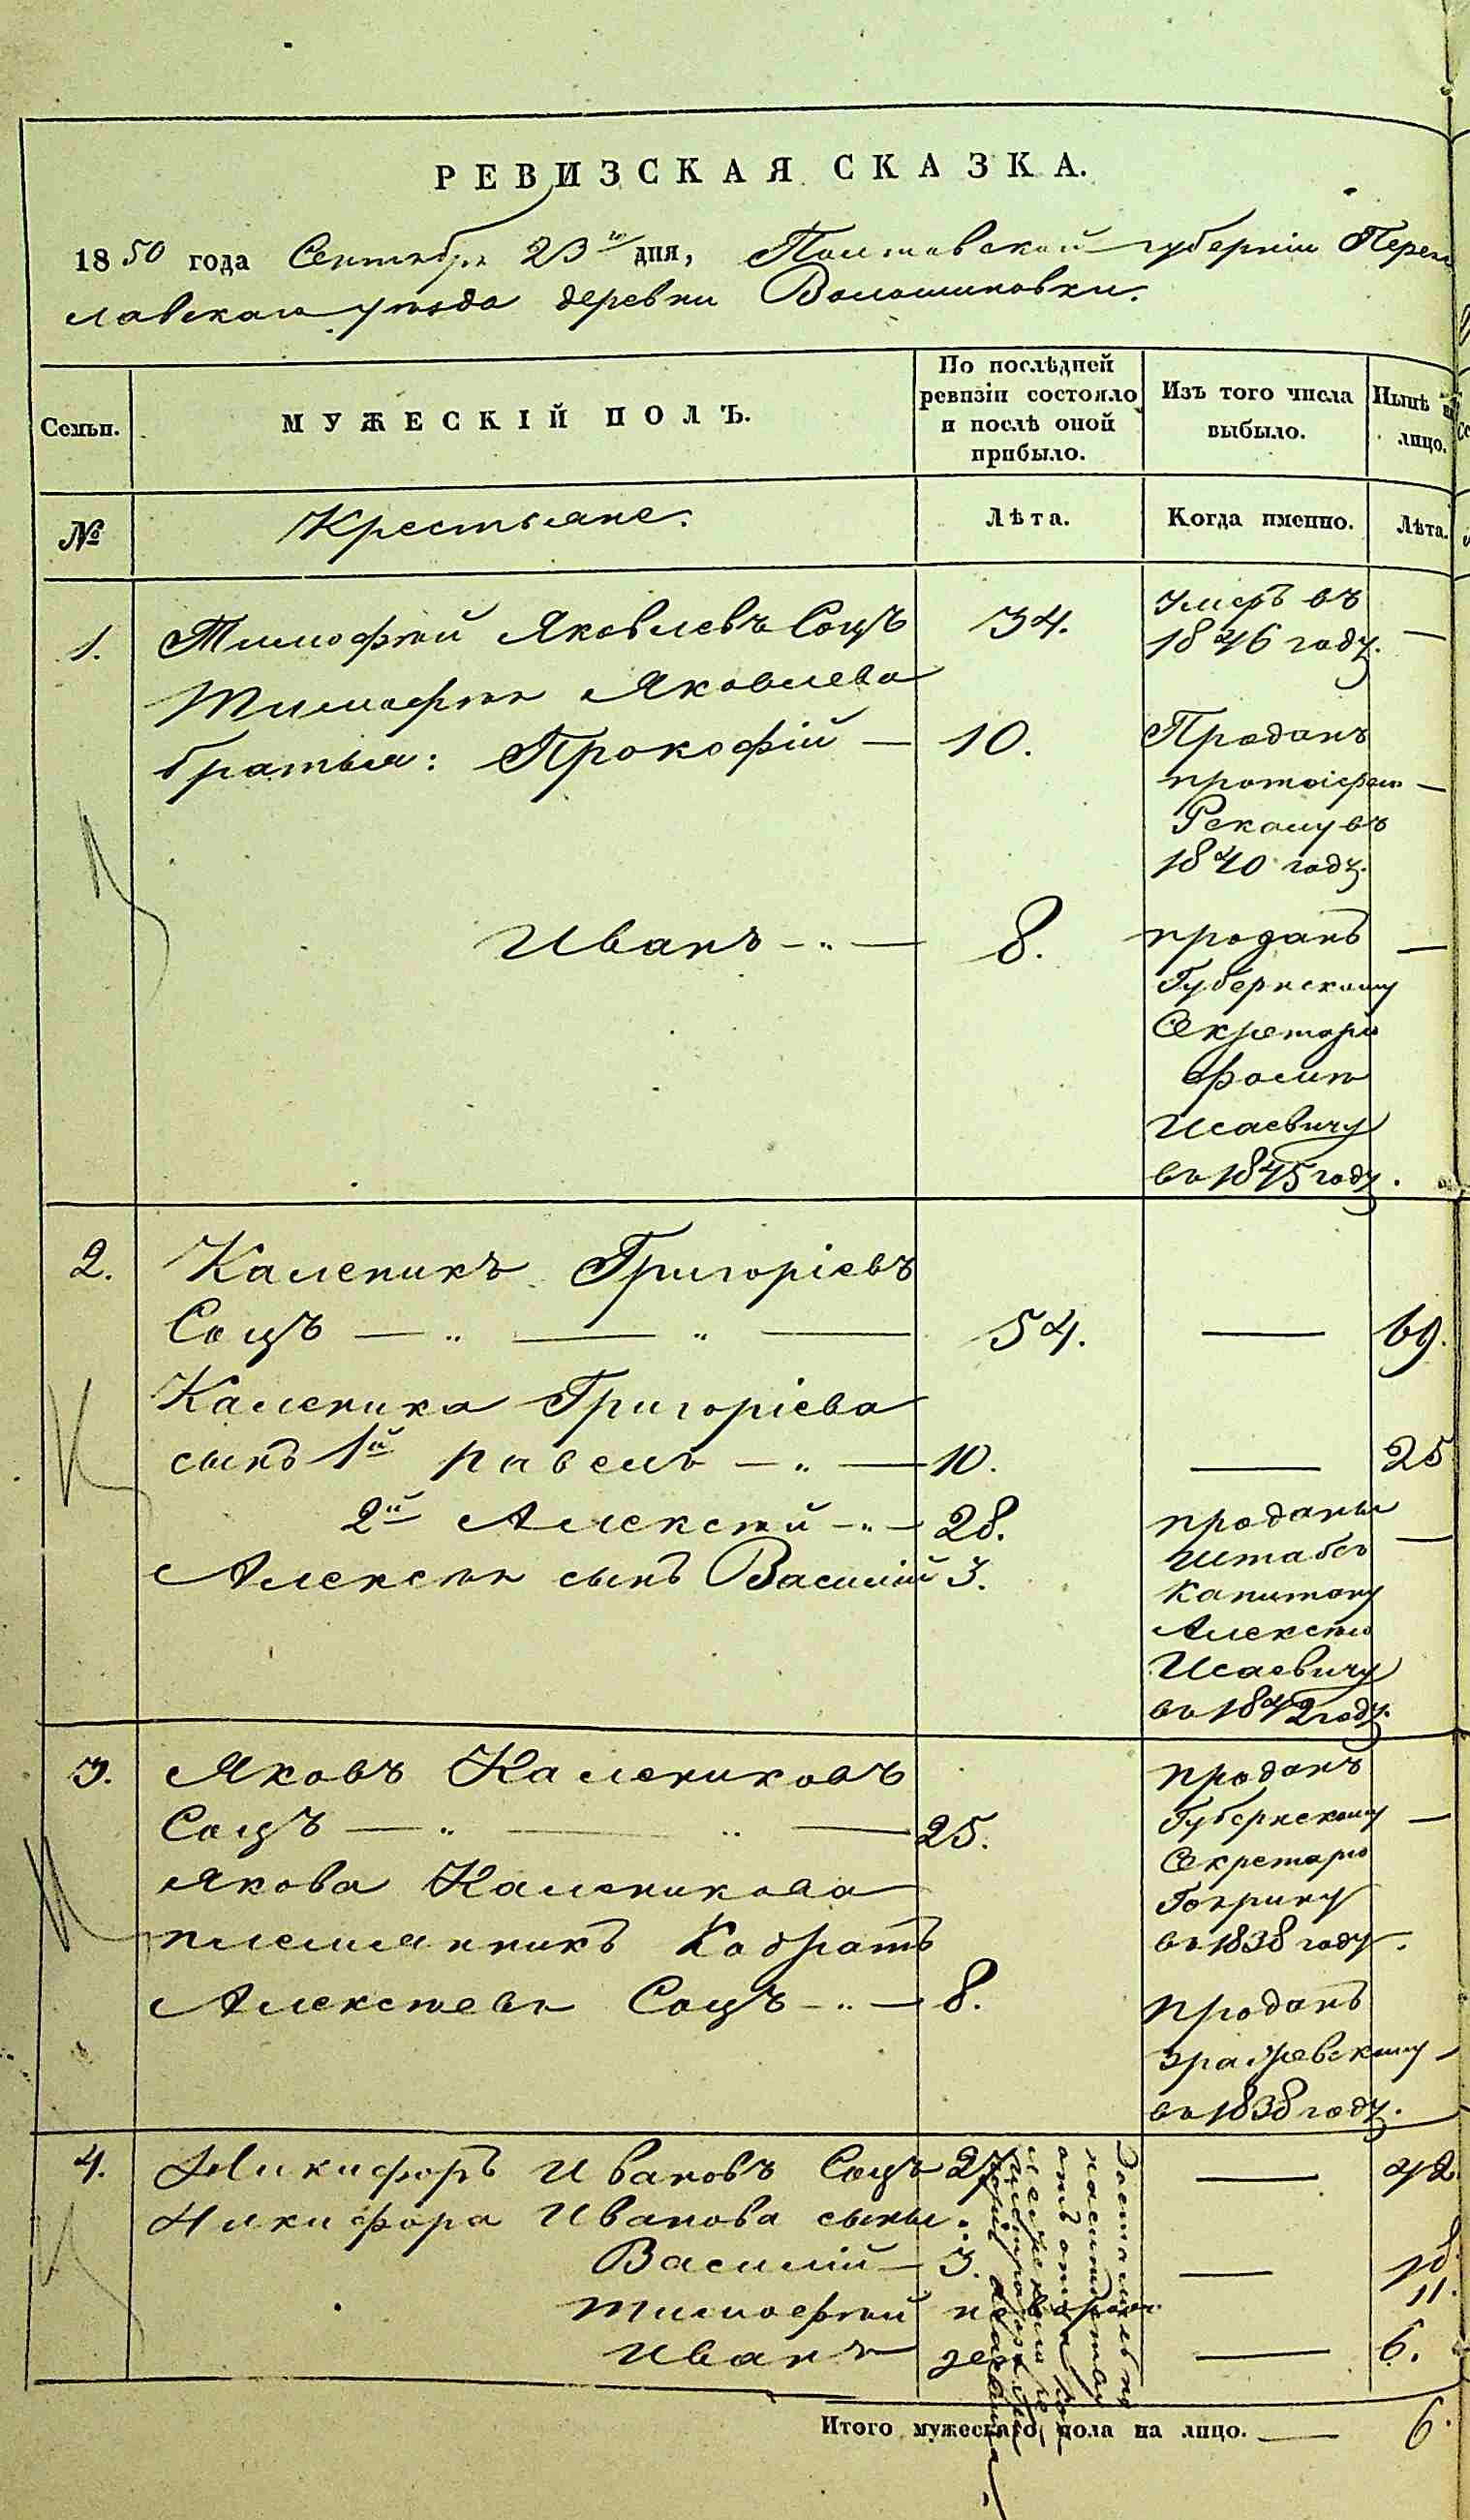 РЕВИЗСКАЯ СКАЗКА.
1850 года Сентября 23го дня, Полтавской губерніи Перея
славскаго уѣзда деревни Волошиновки.
Семьи.
МУЖЕСКІЙ ПОЛЪ.
По послѣдней
ревизіи состояло
и послѣ оной
прибыло.
Изъ того числа
выбыло.
Нынѣ на
лицо.
№
Крестьяне.
Лѣта.
Когда именно.
Лѣта.
1. Тимофѣй Яковлевъ Соцъ 34. Умеръ въ
1846 году. —
Тимофѣя Яковлева
братья: Прокофій — 10. Проданъ
протоіерею —
въ
1840 году.
Иванъ — „ — 8. проданъ —
Губернскому
Секретарю
Фомѣ
Исаевичу
въ 1845 году.
2. Каленикъ Григоріевъ
Соцъ — „ — „ — 54. — 69.
Каленика Григоріева
сынъ 1й Павелъ — „ — 10. — 25
2й Алексѣй — „ — 28. проданы —
Алексѣя сынъ Василій 3. Штабсъ
Капитану
Алексѣю
Исаевичу
въ 1842 году.
3. Яковъ Калениковъ
Соцъ — „ — „ — 25. проданъ
Губернскому —
Секретарю
въ 1838 году.
Якова Каленикова
племянникъ Кодратъ
Алексѣевъ Соцъ — „ — 8. проданъ
въ 1838 году.
4. Никифоръ Ивановъ Соцъ 27. — 42
Никифора Иванова сыны:
Василій — 3. — 18.
Тимофѣй 11.
Иванъ — 6.
Итого мужескаго пола на лицо. — 6.